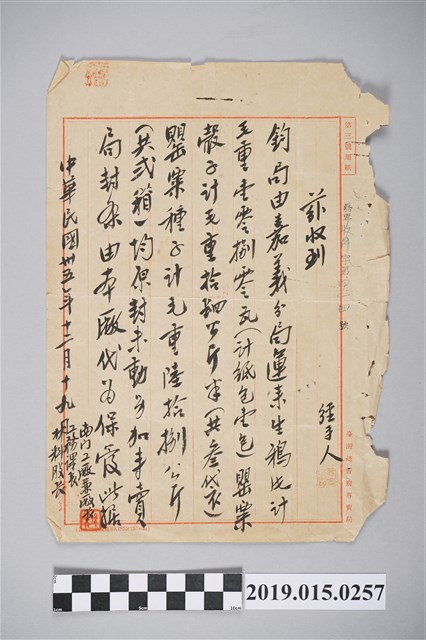 第三號用紙
茲收到
鈞局由嘉義分局運來生鴉片計
毛重壹零捌零瓦(計紙包壹包)罌粟
殼子計毛重拾肆公斤半(共叁代)
罌粟種子計毛重陸拾捌公斤
(共弍箱)均原封未動另加本賣
局封条由本廠代為保管此据
經手人
中華民國卅五年十二月十九日
南門工廠
工務課長
材料股長
2019.015.0257